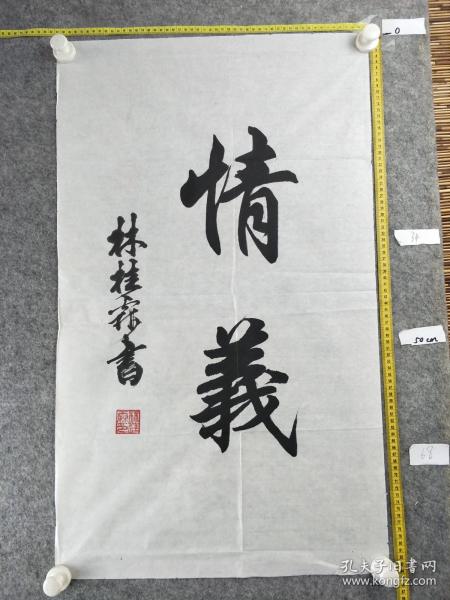 情義
林桂霖書
0
34
50cm
68
孔夫子旧書网
www.kongfz.com